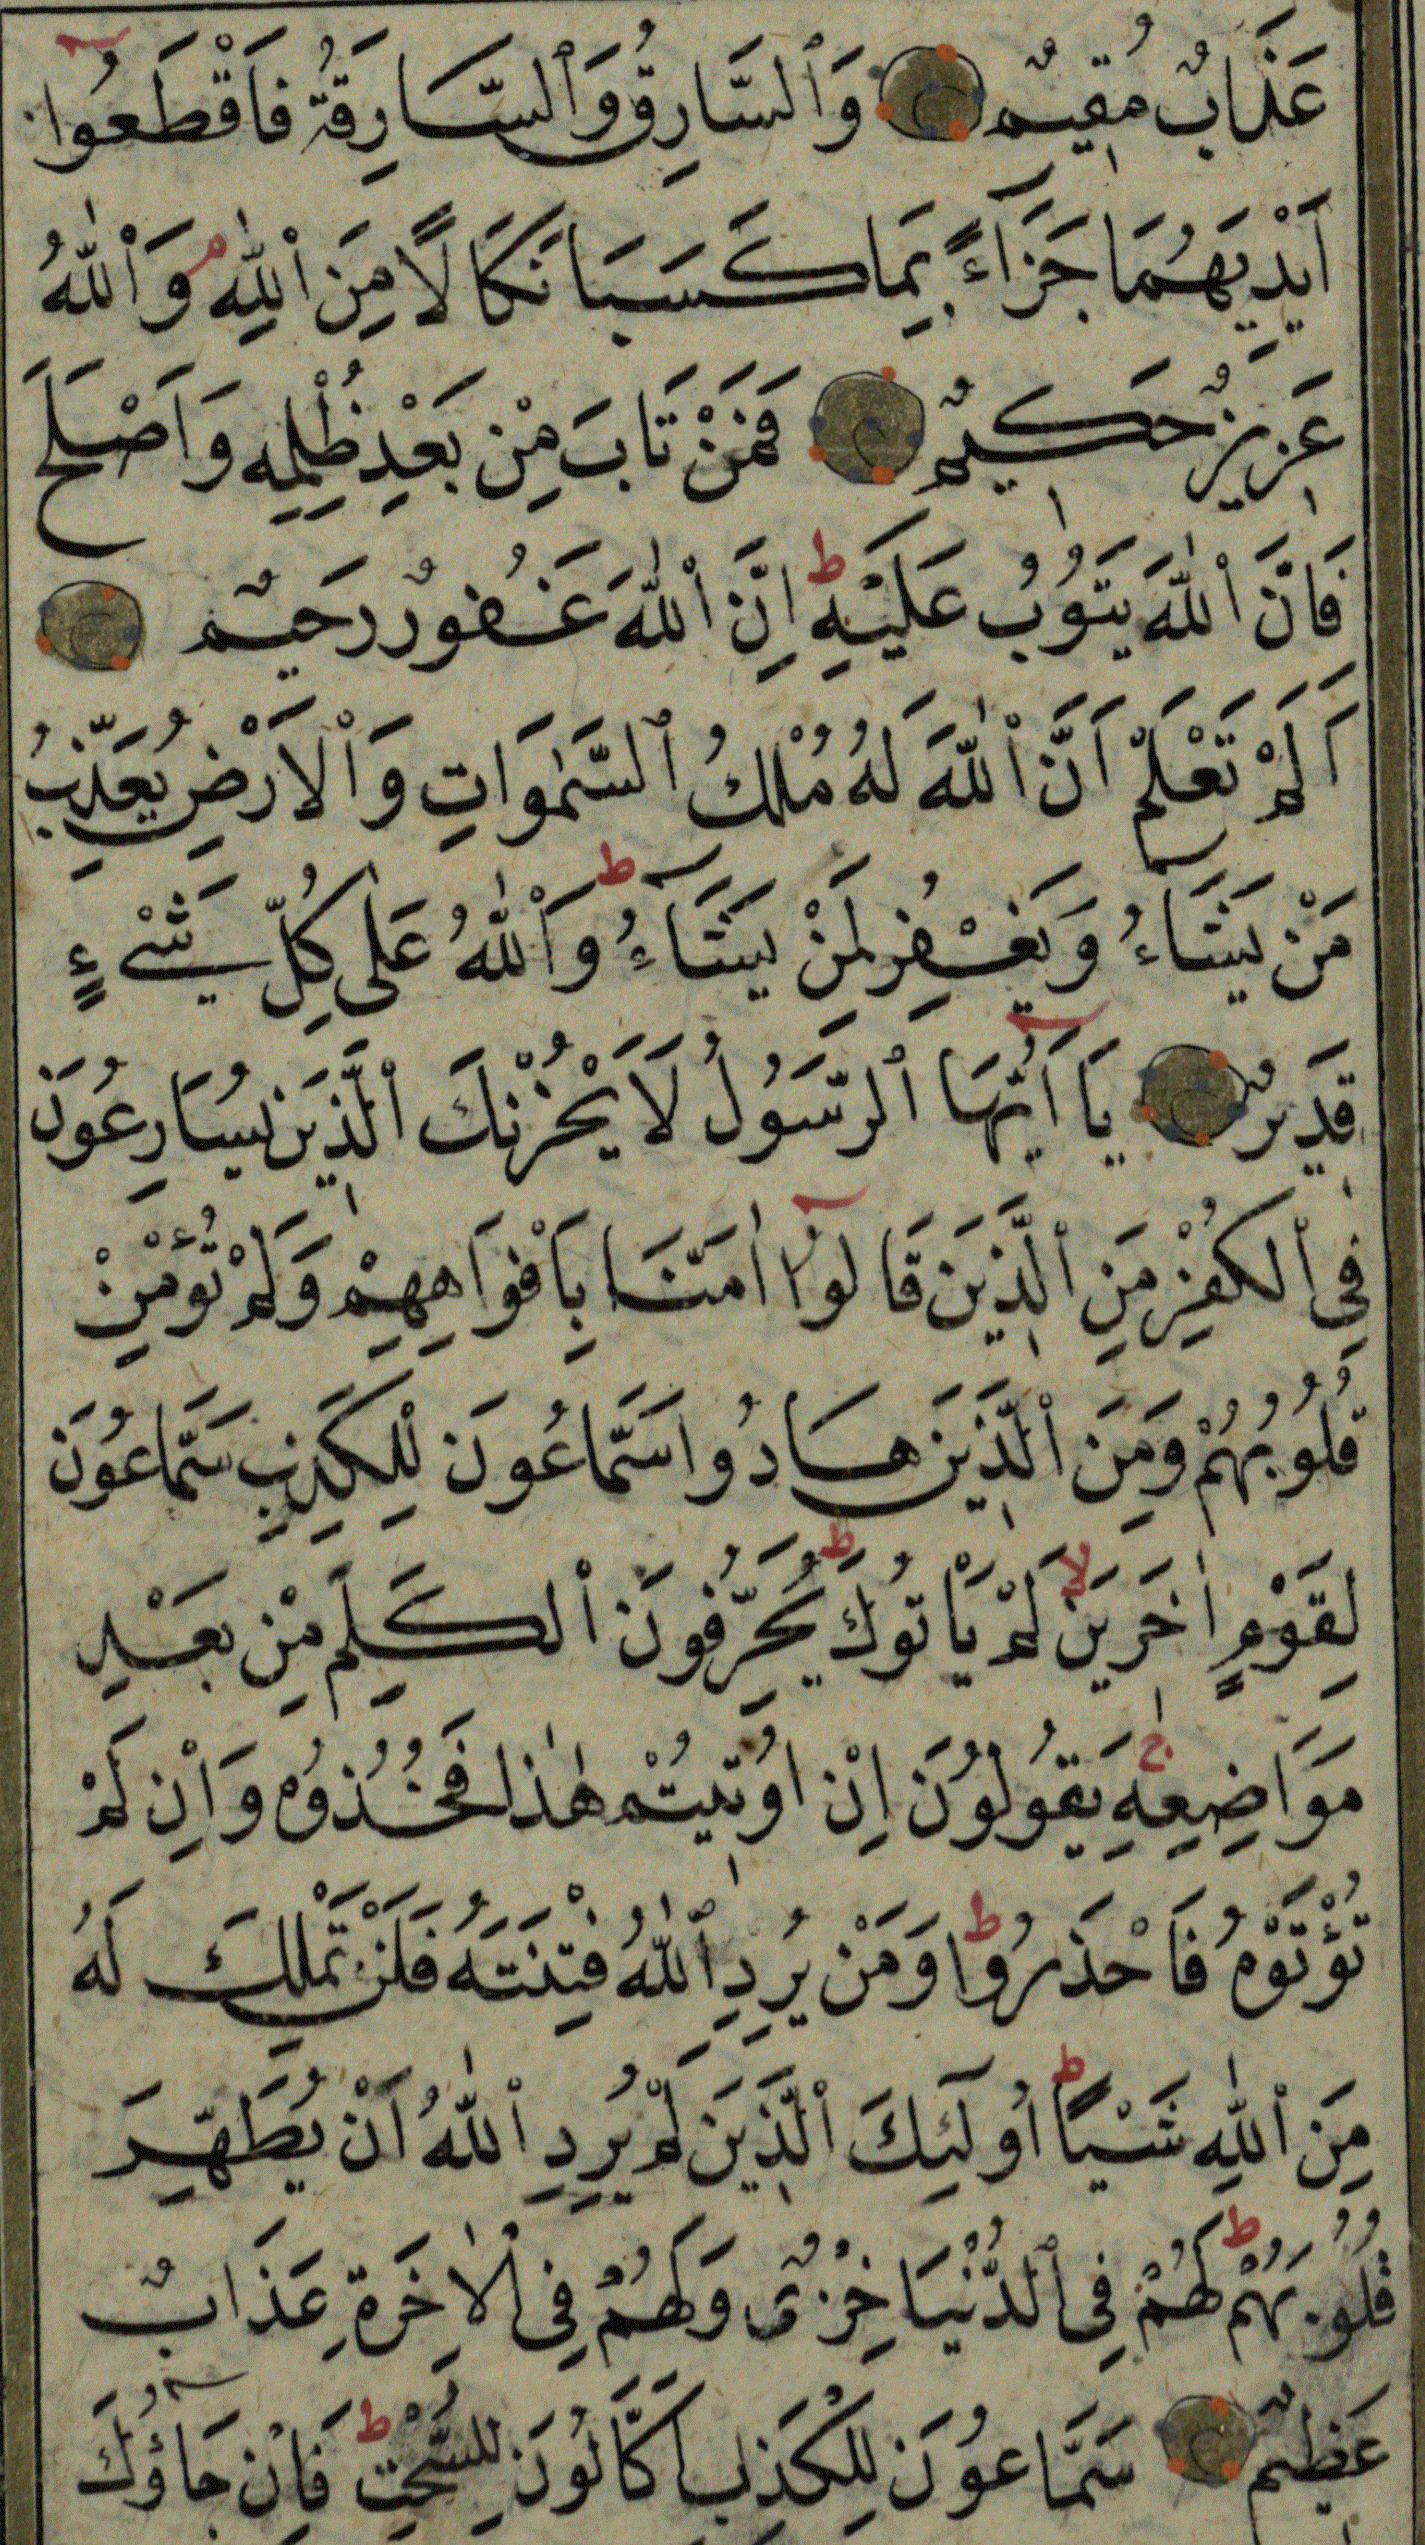 عَذَابٌ مُقِيمٌ وَٱلسَّارِقُ وَٱلسَّارِقَةُ فَاقْطَعُوا
اَيْدِيَهُمَا جَزَٓاءً بِمَا كَسَبَا نَكَالًا مِنَ ٱللّٰهِ م وَٱللّٰهُ
عَزِيزٌ حَكِيمٌ فَمَنْ تَابَ مِنْ بَعْدِ ظُلْمِهِ وَاَصْلَحَ
فَاِنَّ ٱللّٰهَ يَتُوبُ عَلَيْهِ ط اِنَّ ٱللّٰهَ غَفُورٌ رَحِيمٌ
اَلَمْ تَعْلَمْ اَنَّ ٱللّٰهَ لَهُ مُلْكُ ٱلسَّمٰوَاتِ وَٱلْاَرْضِ يُعَذِّبُ
مَنْ يَشَٓاءُ وَيَغْفِرُ لِمَنْ يَشَٓاءُ ط وَٱللّٰهُ عَلٰى كُلِّ شَيْءٍ
قَدِيرٌ يَٓا اَيُّهَا ٱلرَّسُولُ لَا يَحْزُنْكَ ٱلَّذِينَ يُسَارِعُونَ
فِي ٱلْكُفْرِ مِنَ ٱلَّذِينَ قَالُٓوا اٰمَنَّا بِاَفْوَاهِهِمْ وَلَمْ تُؤْمِنْ
قُلُوبُهُمْ وَمِنَ ٱلَّذِينَ هَادُوا سَمَّاعُونَ لِلْكَذِبِ سَمَّاعُونَ
لِقَوْمٍ اٰخَرِينَ لا لَمْ يَاْتُوكَ ط يُحَرِّفُونَ ٱلْكَلِمَ مِنْ بَعْدِ
مَوَاضِعِهِ ج يَقُولُونَ اِنْ اُو۫تِيتُمْ هٰذَا فَخُذُوهُ وَاِنْ لَمْ
تُؤْتَوْهُ فَاحْذَرُوا ط وَمَنْ يُرِدِ ٱللّٰهُ فِتْنَتَهُ فَلَنْ تَمْلِكَ لَهُ
مِنَ ٱللّٰهِ شَيْـًٔا ط اُو۬لٰٓئِكَ ٱلَّذِينَ لَمْ يُرِدِ ٱللّٰهُ اَنْ يُطَهِّرَ
قُلُوبَهُمْ ط لَهُمْ فِي ٱلدُّنْيَا خِزْيٌ وَلَهُمْ فِي ٱلْاٰخِرَةِ عَذَابٌ
عَظِيمٌ سَمَّاعُونَ لِلْكَذِبِ اَكَّالُونَ لِلسُّحْتِ ط فَاِنْ جَٓاؤُكَ